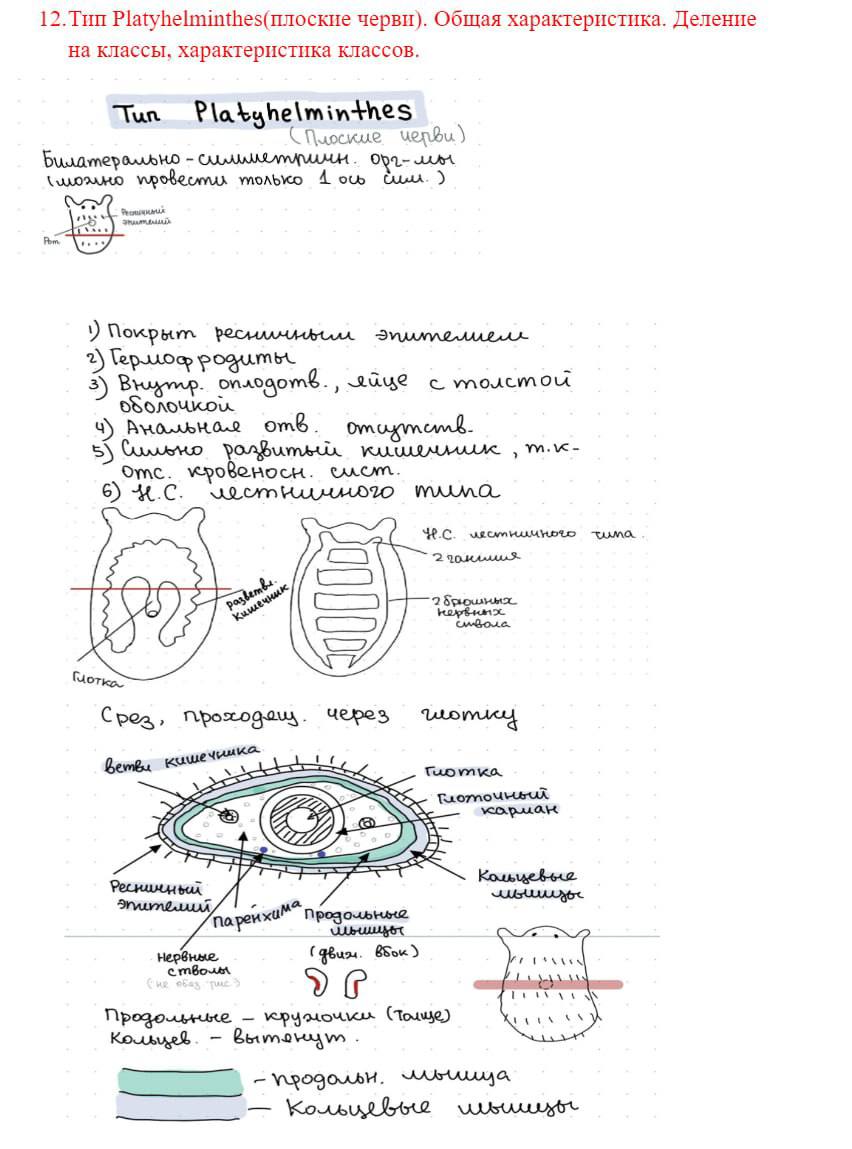 12.Тип Platyhelminthes(плоские черви). Общая характеристика. Деление
на классы, характеристика классов.
Тип Platyhelminthes
(Плоские черви)
Билатерально-симметричн. орг-мы
(можно провести только 1 ось сим.)
Ресничный
эпителий
Рот
1) Покрыт ресничным эпителием
2) Гермофродиты
3) Внутр. оплодотв., яйце с толстой
оболочкой
4) Анальная отв. отсутств.
5) Сильно развитый кишечник, т.к-
отс. кровеносн. сист.
6) Н.С. лестничного типа
Н.С. лестничного типа.
2 ганглия
разветвл.
кишечник
2 брюшных
нервных
ствола
Глотка
Срез, проходящ. через глотку
ветви кишечника
Глотка
Глоточный
карман
Ресничный
эпителий
Паренхима
Продольные
мышцы
(движ. вбок)
Кольцевые
мышцы
Нервные
стволы
(не обяз. рис.)
Продольные – кружочки (толще)
Кольцев. – вытянут.
– продольн. мышца
– Кольцевые мышцы